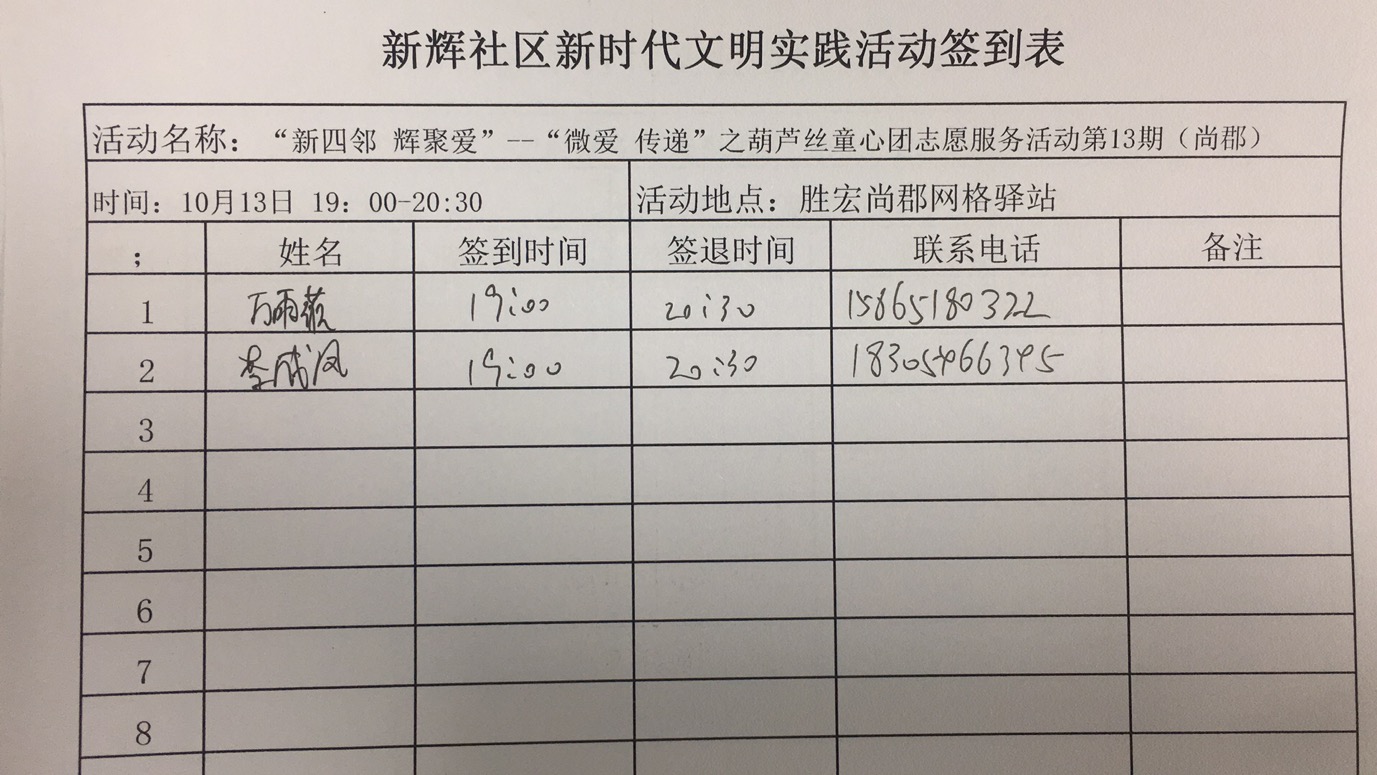 新辉社区新时代文明实践活动签到表
活动名称：“新四邻 辉聚爱”--“微爱 传递”之葫芦丝童心团志愿服务活动第13期（尚郡）
时间：10月13日 19：00-20:30 活动地点：胜宏尚郡网格驿站
； 姓名 签到时间 签退时间 联系电话 备注
1 万雨薇 19:00 20:30 15865180322
2 李成凤 19:00 20:30 18305466395
3
4
5
6
7
8